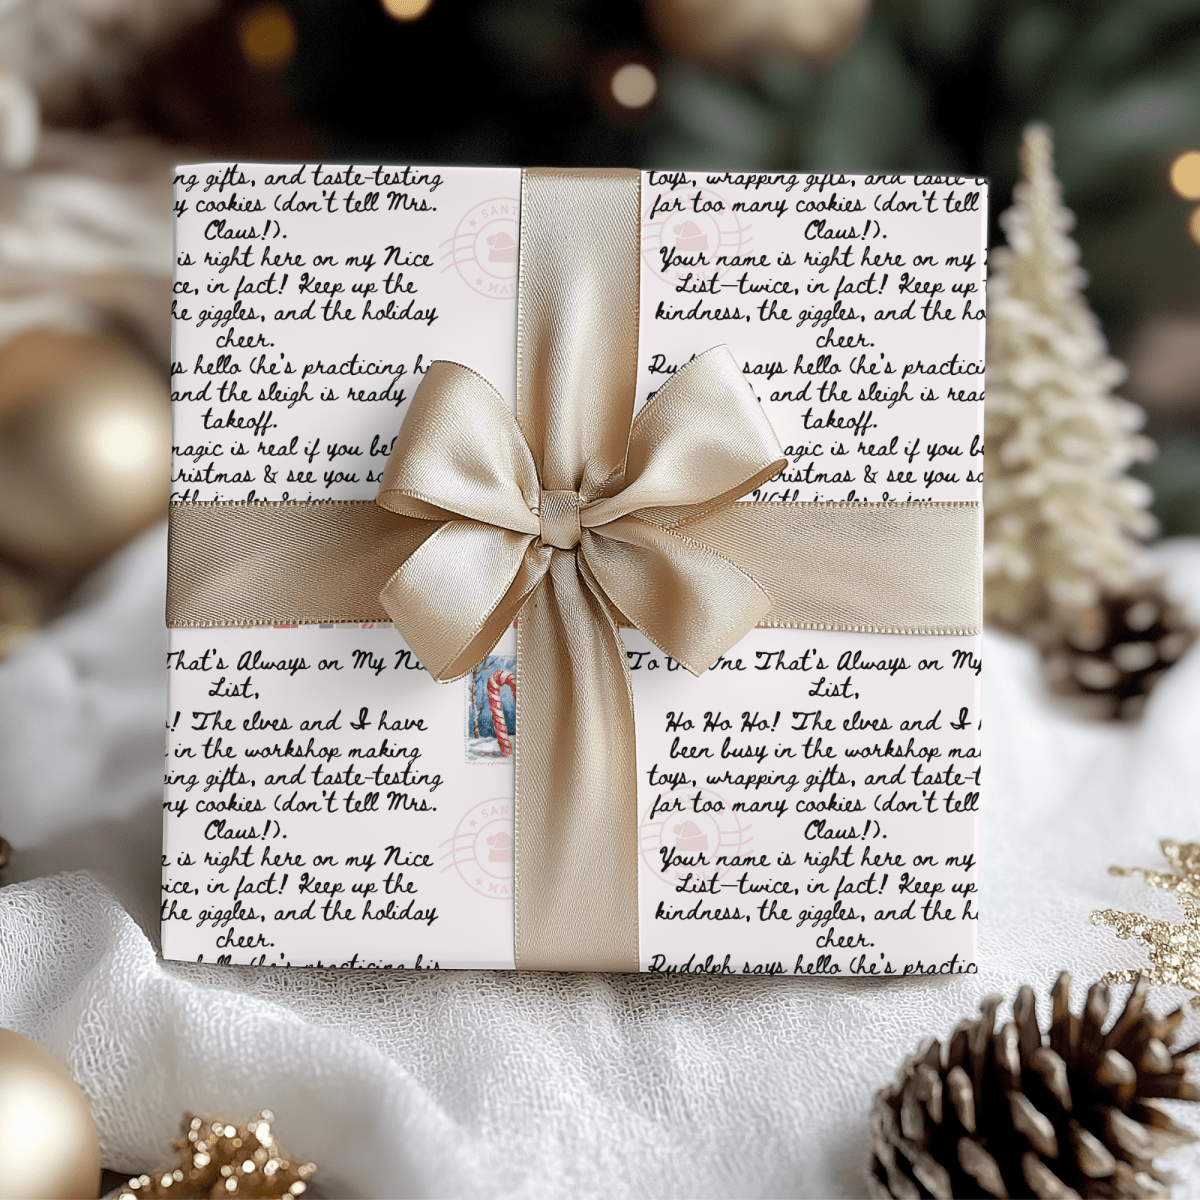 ng gifts, and taste-testing
y cookies (don't tell Mrs.
Claus!).
is right here on my Nice
ce, in fact! Keep up the
he giggles, and the holiday
cheer.
s hello (he's practicing hi
and the sleigh is ready
takeoff.
magic is real if you bel
ristmas & see you so
toys, wrapping gifts, and taste-t
far too many cookies (don't tell
Claus!).
Your name is right here on my
List—twice, in fact! Keep up
kindness, the giggles, and the ho
cheer.
Rud says hello (he's practici
, and the sleigh is read
takeoff.
agic is real if you be
ristmas & see you so
SANT
MA
That's Always on My Ni
List,
! The elves and I have
in the workshop making
ing gifts, and taste-testing
ny cookies (don't tell Mrs.
Claus!).
e is right here on my Nice
ice, in fact! Keep up the
the giggles, and the holiday
cheer.
hello (he's practicing his
To the One That's Always on My
List,
Ho Ho Ho! The elves and I h
been busy in the workshop ma
toys, wrapping gifts, and taste-t
far too many cookies (don't tell
Claus!).
Your name is right here on my
List—twice, in fact! Keep up
kindness, the giggles, and the h
cheer.
Rudolph says hello (he's practic
SANT
MA